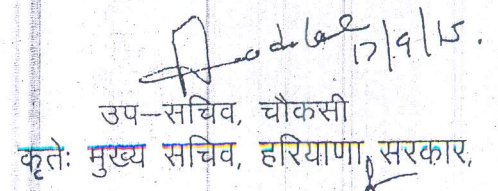 17/9/15.
उप-सचिव, चौकसी
कृतेः मुख्य सचिव, हरियाणा, सरकार,